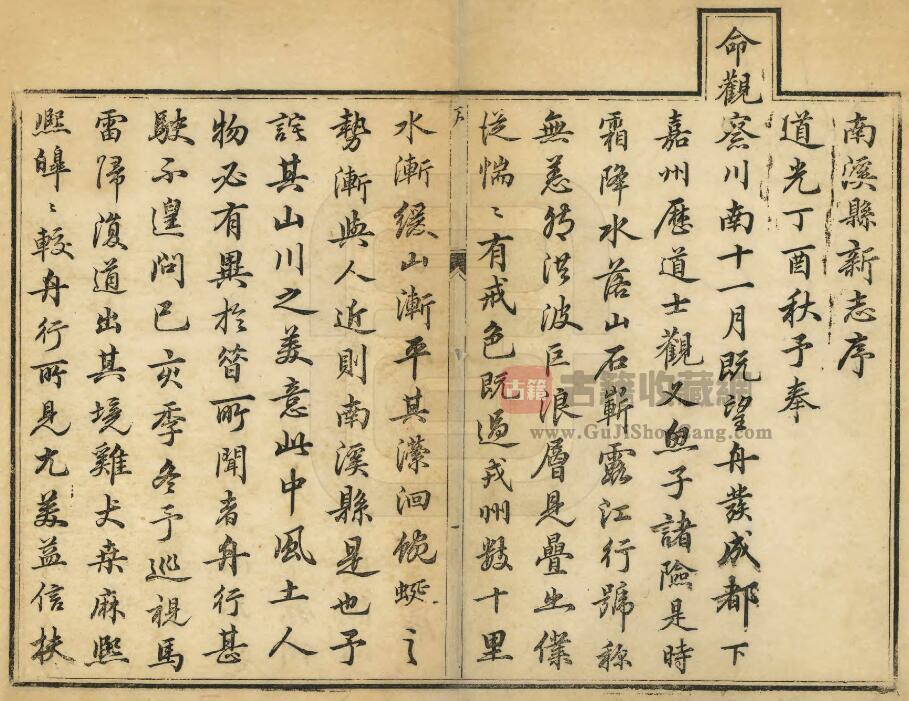 南溪縣新志序
道光丁酉秋予奉
命觀察川南十一月既望舟發成都下
嘉州歷道士觀叉魚子諸險是時
霜降水落山石嶄露江行號稱
無恙然洪波巨浪層見疊出僕
從惴〻有戒色既過戎州數十里
水漸緩山漸平其瀠洄蜿蜒之
勢漸與人近則南溪縣是也予
詫其山川之美意此中風土人
物必有異於昔所聞者舟行甚
駛不遑問已亥季冬予巡視馬
雷歸復道出其境雞犬桑麻熙
熙皞〻較舟行所見尤美益信扶
古籍
古籍收藏網
www.GuJiShouCang.com